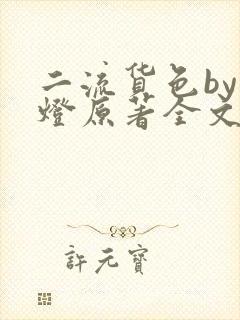 二流货色by
燈原著全文
許元寶